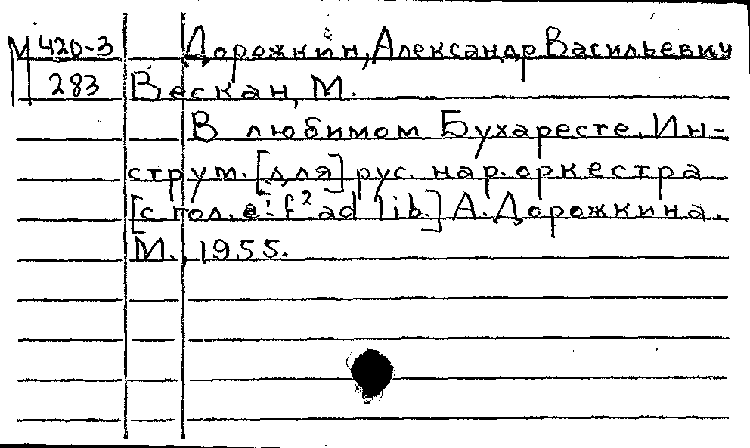 М 420-3 Дорожкин, Александр Васильевич
283 Вескан, М.
В любимом Бухаресте. Ин-
струм. [для] рус. нар. оркестра
[с гол. e¹-f² ad lib.] А. Дорожкина.
М., 1955.